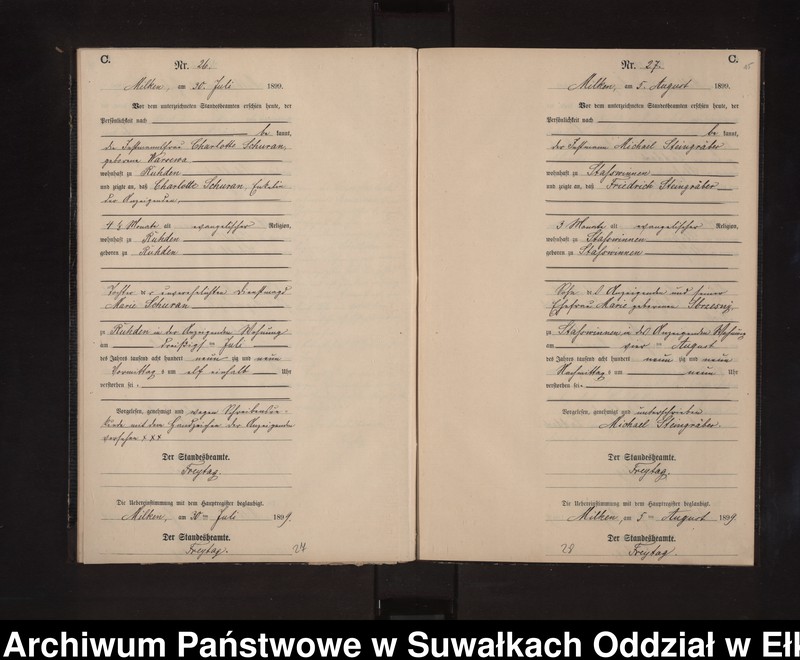 C.
Nr. 26.
Milken, am 30. Juli 1899.
Vor dem unterzeichneten Standesbeamten erschien heute, der
Persönlichkeit nach
be kannt,
die Instmannsfrau Charlotte Schuran,
geborene Warrewa
wohnhaft zu Ruhden
und zeigte an, daß Charlotte Schuran, Enkelin
der Anzeigenden,
4 ½ Monate alt evangelischer Religion,
wohnhaft zu Ruhden
geboren zu Ruhden
Tochter der unverehelichten Dienstmagd
Marie Schuran
zu Ruhden in der Anzeigenden Wohnung
am Dreißigsten Juli
des Jahres tausend acht hundert neunzig und neun
Vormittags um elf einhalb Uhr
verstorben sei.
Vorgelesen, genehmigt und wegen Schreibensun-
kunde mit dem Handzeichen der Anzeigenden
versehen xxx
Der Standesbeamte.
Freytag.
Die Uebereinstimmung mit dem Hauptregister beglaubigt.
Milken, am 30ten Juli 1899.
Der Standesbeamte.
Freytag.
27
C.
Nr. 27.
Milken, am 5. August 1899.
Vor dem unterzeichneten Standesbeamten erschien heute, der
Persönlichkeit nach
be kannt,
der Instmann Michael Steingräber
wohnhaft zu Staßwinnen
und zeigte an, daß Friedrich Steingräber
3 Monate alt evangelischer Religion,
wohnhaft zu Staßwinnen
geboren zu Staßwinnen
Sohn des Anzeigenden und seiner
Ehefrau Marie geborenen
zu Staßwinnen in des Anzeigenden Wohnung
am vierten August
des Jahres tausend acht hundert neunzig und neun
Nachmittags um neun Uhr
verstorben sei.
Vorgelesen, genehmigt und unterschrieben
Michael Steingräber.
Der Standesbeamte.
Freytag.
Die Uebereinstimmung mit dem Hauptregister beglaubigt.
Milken, am 5ten August 1899.
Der Standesbeamte.
Freytag.
28
Archiwum Państwowe w Suwałkach Oddział w Ełk